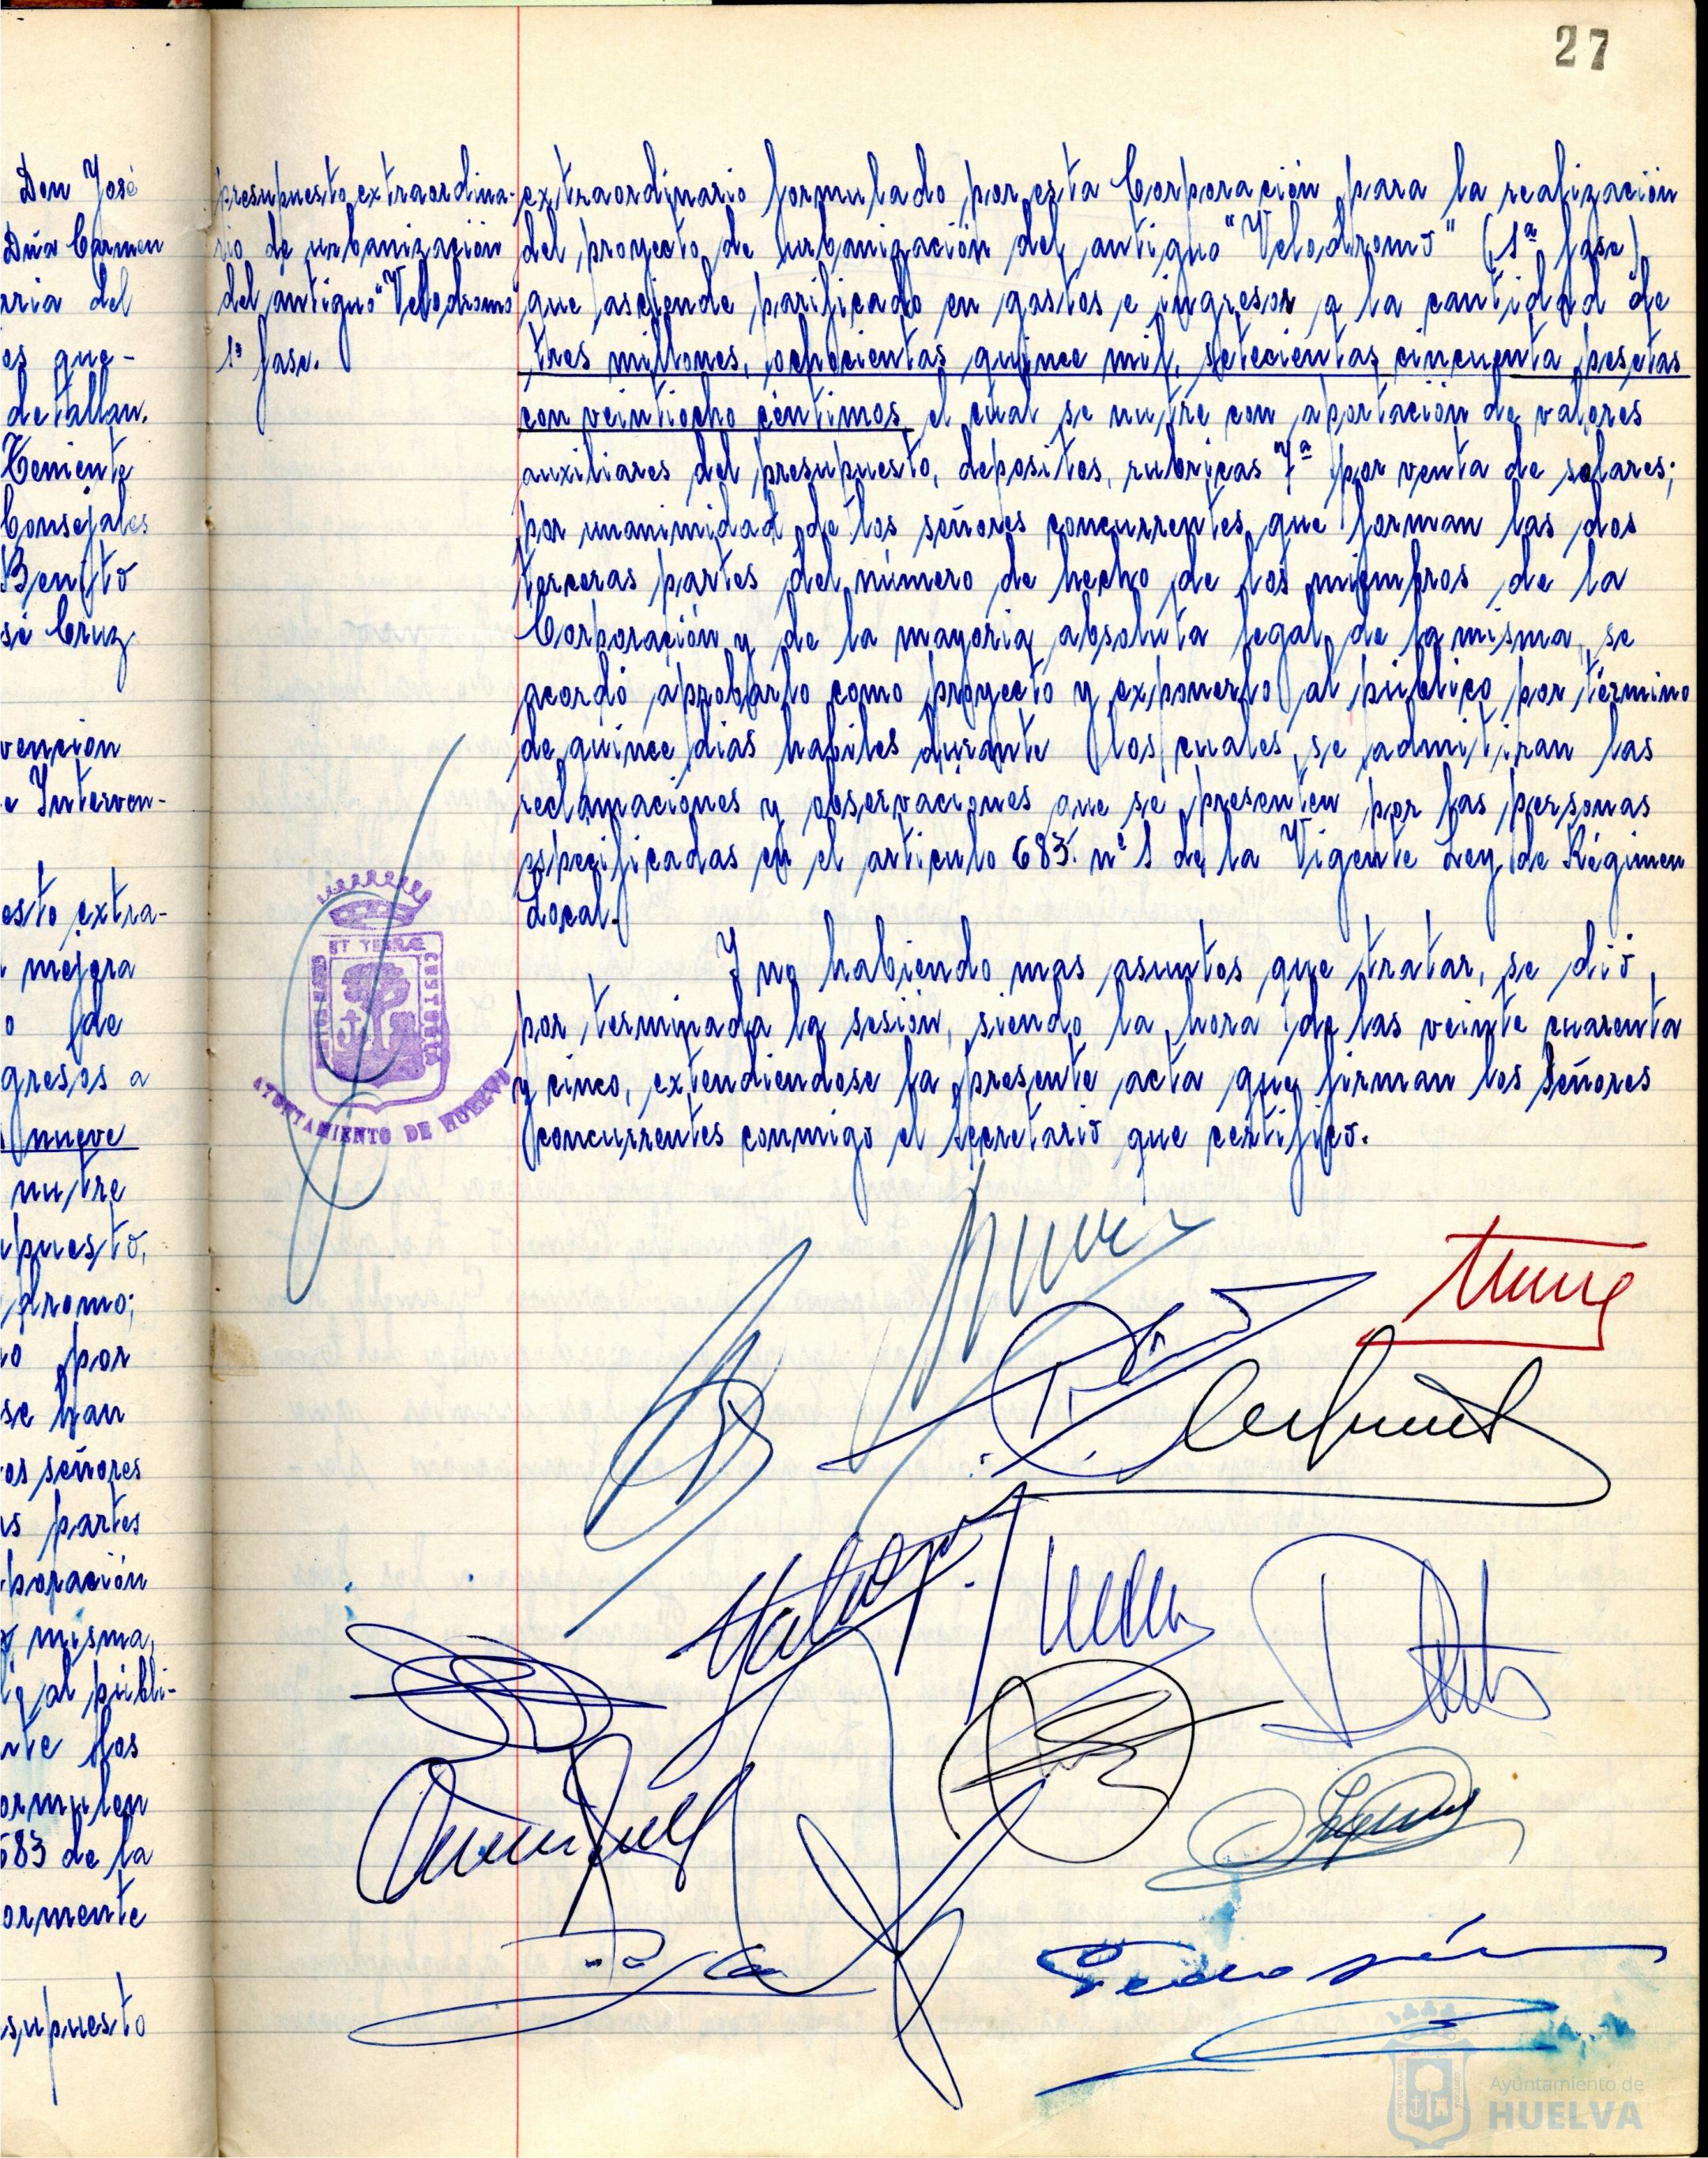 27
Don José
Dña Carmen
ria del
es que-
detallan.
Teniente
Consejales
Benito
sé Cruz
vención
e Interven-
esto extra-
mejora
o de
gresos a
nueve
nutre
upuesto,
dromo;
o por
se han
os señores
s partes
poración
misma,
al públi-
nte los
ormulen
683 de la
ormente
supuesto
presupuesto extraordina-
rio de urbanización
del antiguo "Velodromo"
1ª fase.
extraordinario formulado por esta Corporación para la realización
del proyecto de urbanización del antiguo "Velodromo" (1ª fase)
que asciende parificado en gastos e ingresos a la cantidad de
tres millones, ochocientas quince mil, setecientas cincuenta pesetas
con veintiocho céntimos el cual se nutre con aportación de valores
auxiliares del presupuesto, depositos, rubricas 7ª por venta de solares;
por unanimidad de los señores concurrentes que forman las dos
terceras partes del número de hecho de los miembros de la
Corporación y de la mayoria absoluta legal de la misma, se
acordó aprobarlo como proyecto y exponerlo al público por término
de quince dias habiles durante los cuales se admitiran las
reclamaciones y observaciones que se presenten por las personas
especificadas en el articulo 683. nº 1 de la Vigente Ley de Régimen
Local.
Y no habiendo mas asuntos que tratar, se dió
por terminada la sesión, siendo la hora de las veinte cuarenta
y cinco, extendiendose la presente acta que firman los señores
concurrentes conmigo el Secretario que certifico.
ET TERRAE
CUSTODIA
AYUNTAMIENTO DE HUELVA
Pedro
Ayuntamiento de
HUELVA